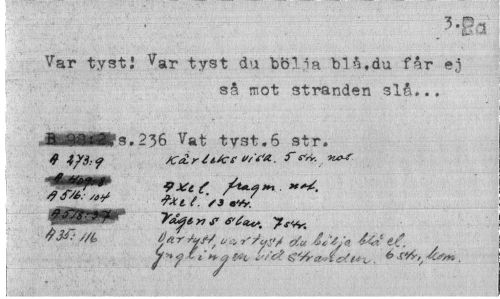 3. Da
Var tyst! Var tyst du bölja blå.du får ej
så mot stranden slå...
B 98:2, s.236 Vat tyst.6 str.
A 273:9 Kärleksvisa. 5 str., not.
A 409:8 Axel. fragm. not.
A 516:104 Axel. 13 str.
A 518:37 Vågens slav. 7 str.
A 35:116 Var tyst, var tyst du bölja blå el.
Ynglingen vid stranden. 6 str., kom.